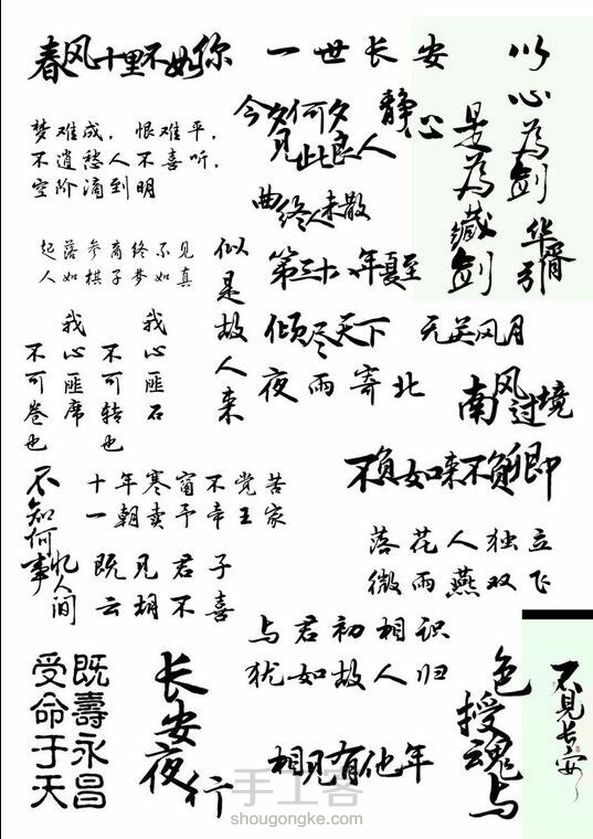 春风十里不如你
一世长安
以心為劍
是為藏劍
静心
今夕何夕
见此良人
梦难成，恨难平，
不道愁人不喜听，
空阶滴到明
曲终人未散
华胥引
起落参商终不见
人如棋子梦如真
似是故人来
第三十八年夏至
倾尽天下
无关风月
夜雨寄北
南风过境
我心匪石
不可转也
我心匪席
不可卷也
不负如来不负卿
十年寒窗不觉苦
一朝卖予帝王家
不知何事
忆人间
既见君子
云胡不喜
落花人独立
微雨燕双飞
与君初相识
犹如故人归
受命于天
既壽永昌
长安夜行
相见有他年
色授魂与
不見长安
手工客
shougongke.com